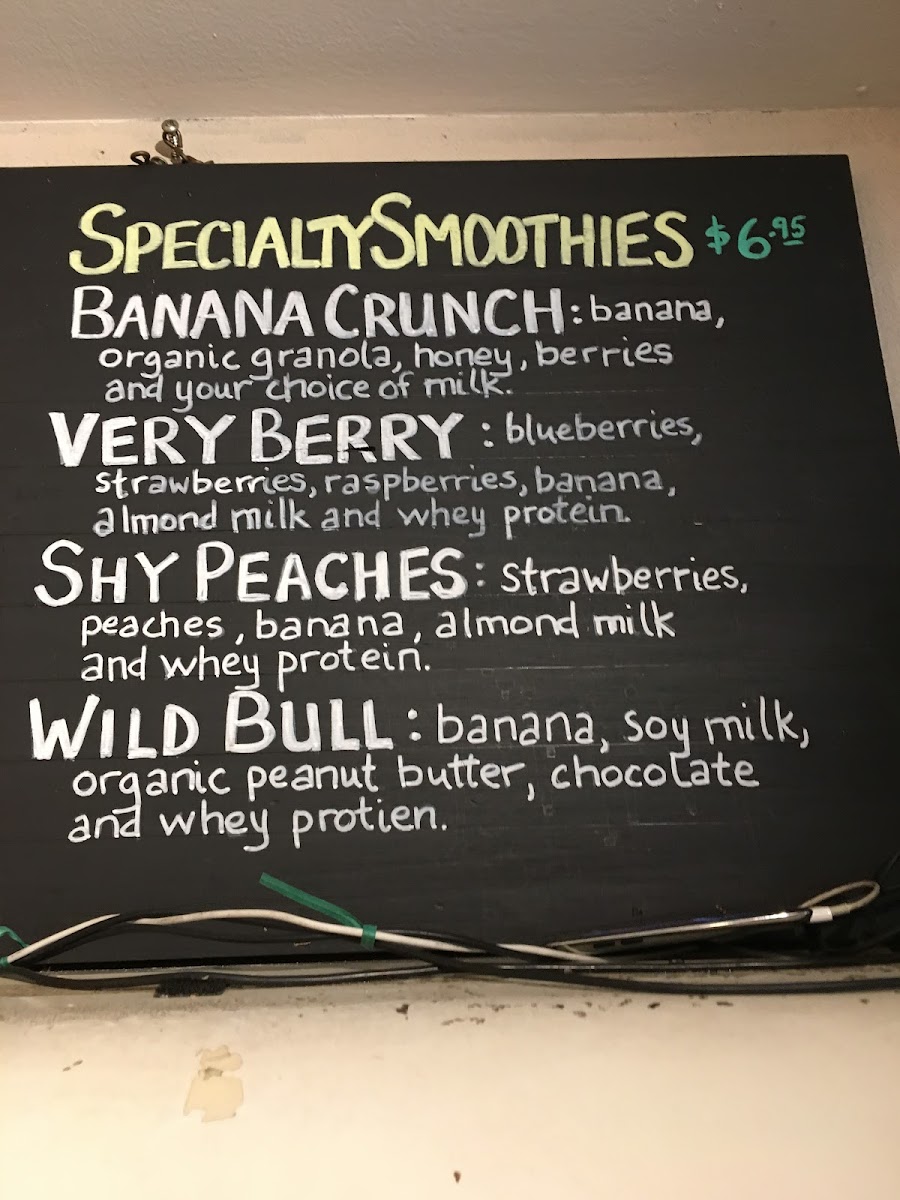 SPECIALTY SMOOTHIES $6.95
BANANA CRUNCH: banana,
organic granola, honey, berries
and your choice of milk.
VERY BERRY: blueberries,
strawberries, raspberries, banana,
almond milk and whey protein.
SHY PEACHES: strawberries,
peaches, banana, almond milk
and whey protein.
WILD BULL: banana, soy milk,
organic peanut butter, chocolate
and whey protien.